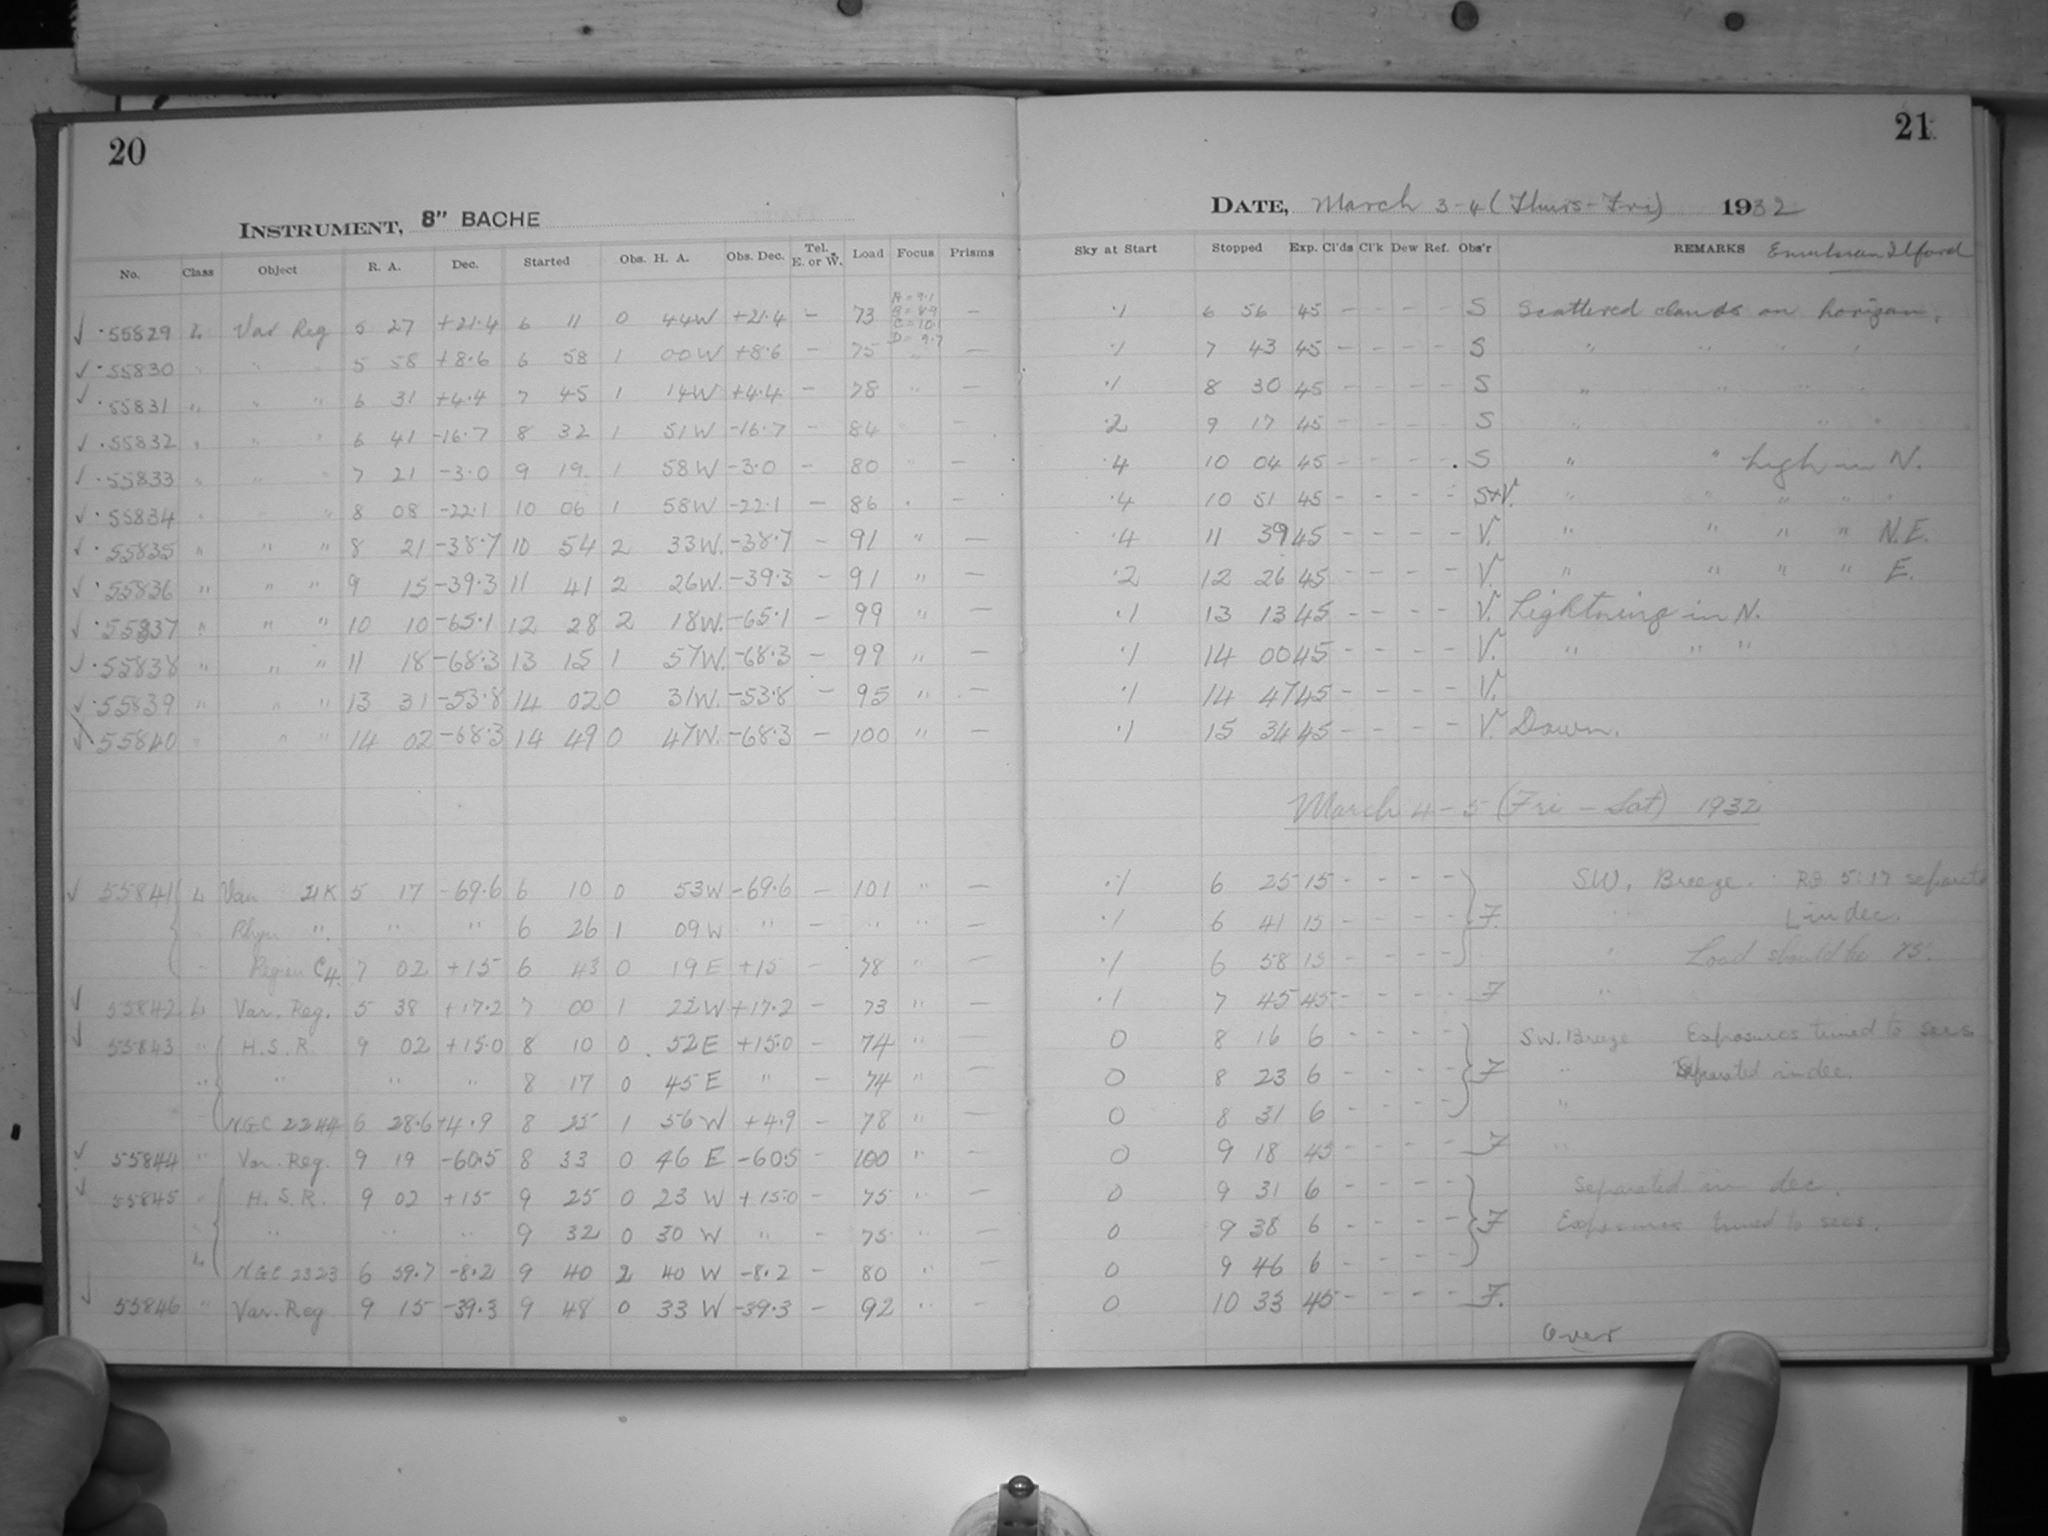 20
INSTRUMENT, 8" BACHE
No. Class Object R. A. Dec. Started Obs. H. A. Obs. Dec. Tel. E. or W. Load Focus Prisms
A = 9.1
B = 8.9
C = 10.1
D = 9.7
55829 L Var Reg 5 27 +21.4 6 11 0 44W +21.4 - 73 -
55830 " " " 5 58 +8.6 6 58 1 00W +8.6 - 75 " -
55831 " " " 6 31 +4.4 7 45 1 14W +4.4 - 78 " -
55832 " " " 6 41 -16.7 8 32 1 51W -16.7 - 84 " -
55833 " " " 7 21 -3.0 9 19 1 58W -3.0 - 80 " -
55834 " " " 8 08 -22.1 10 06 1 58W -22.1 - 86 " -
55835 " " " 8 21 -38.7 10 54 2 33W. -38.7 - 91 " -
55836 " " " 9 15 -39.3 11 41 2 26W. -39.3 - 91 " -
55837 " " " 10 10 -65.1 12 28 2 18W. -65.1 - 99 " -
55838 " " " 11 18 -68.3 13 15 1 57W. -68.3 - 99 " -
55839 " " " 13 31 -53.8 14 02 0 31W. -53.8 - 95 " -
55840 " " " 14 02 -68.3 14 49 0 47W. -68.3 - 100 " -
55841 L Var 5 17 -69.6 6 10 0 53W -69.6 - 101 " -
" " " " 6 26 1 09W " - " " -
" Region C4. 7 02 +15 6 43 0 19E +15 - 78 " -
55842 L Var. Reg. 5 38 +17.2 7 00 1 22W +17.2 - 73 " -
55843 " H.S.R. 9 02 +15.0 8 10 0 52E +15.0 - 74 " -
" " " " 8 17 0 45E " - 74 " -
" NGC 2244 6 28.6 +4.9 8 25 1 56W +4.9 - 78 " -
55844 " Var. Reg. 9 19 -60.5 8 33 0 46 E -60.5 - 100 " -
55845 " H.S.R. 9 02 +15 9 25 0 23 W +15.0 - 75 " -
" " " " 9 32 0 30 W " - 75 " -
L NGC 2323 6 59.7 -8.2 9 40 2 40 W -8.2 - 80 " -
55846 " Var. Reg 9 15 -39.3 9 48 0 33 W -39.3 - 92 " -
21
DATE, March 3-4 (Thurs-Fri) 1932
Sky at Start Stopped Exp. Cl'ds Cl'k Dew Ref. Obs'r REMARKS Emulsion Ilford
.1 6 56 45 - - - - S Scattered clouds on horizon.
.1 7 43 45 - - - - S " " " "
.1 8 30 45 - - - - S " " " "
.2 9 17 45 - - - - S " " "
.4 10 04 45 - - - - S " " high in N.
.4 10 51 45 - - - - S+V. " " " " "
.4 11 39 45 - - - - V. " " " " N.E.
.2 12 26 45 - - - - V. " " " " E.
.1 13 13 45 - - - - V. Lightning in N.
.1 14 00 45 - - - - V. " " "
.1 14 47 45 - - - - V.
.1 15 34 45 - - - - V. Dawn.
March 4-5 (Fri - Sat) 1932
.1 6 25 15 - - - - SW. Breeze. 5:17 separate
.1 6 41 15 - - - - F. " in dec.
.1 6 58 15 - - - - " Load should be 75.
.1 7 45 45 - - - - F "
0 8 16 6 - - - - SW. Breeze Exposures timed to secs
0 8 23 6 - - - - F " Separated in dec.
0 8 31 6 - - - - "
0 9 18 45 - - - - F "
0 9 31 6 - - - - Separated in dec.
0 9 38 6 - - - - F Exposures timed to secs.
0 9 46 6 - - - -
0 10 33 45 - - - - F.
Over